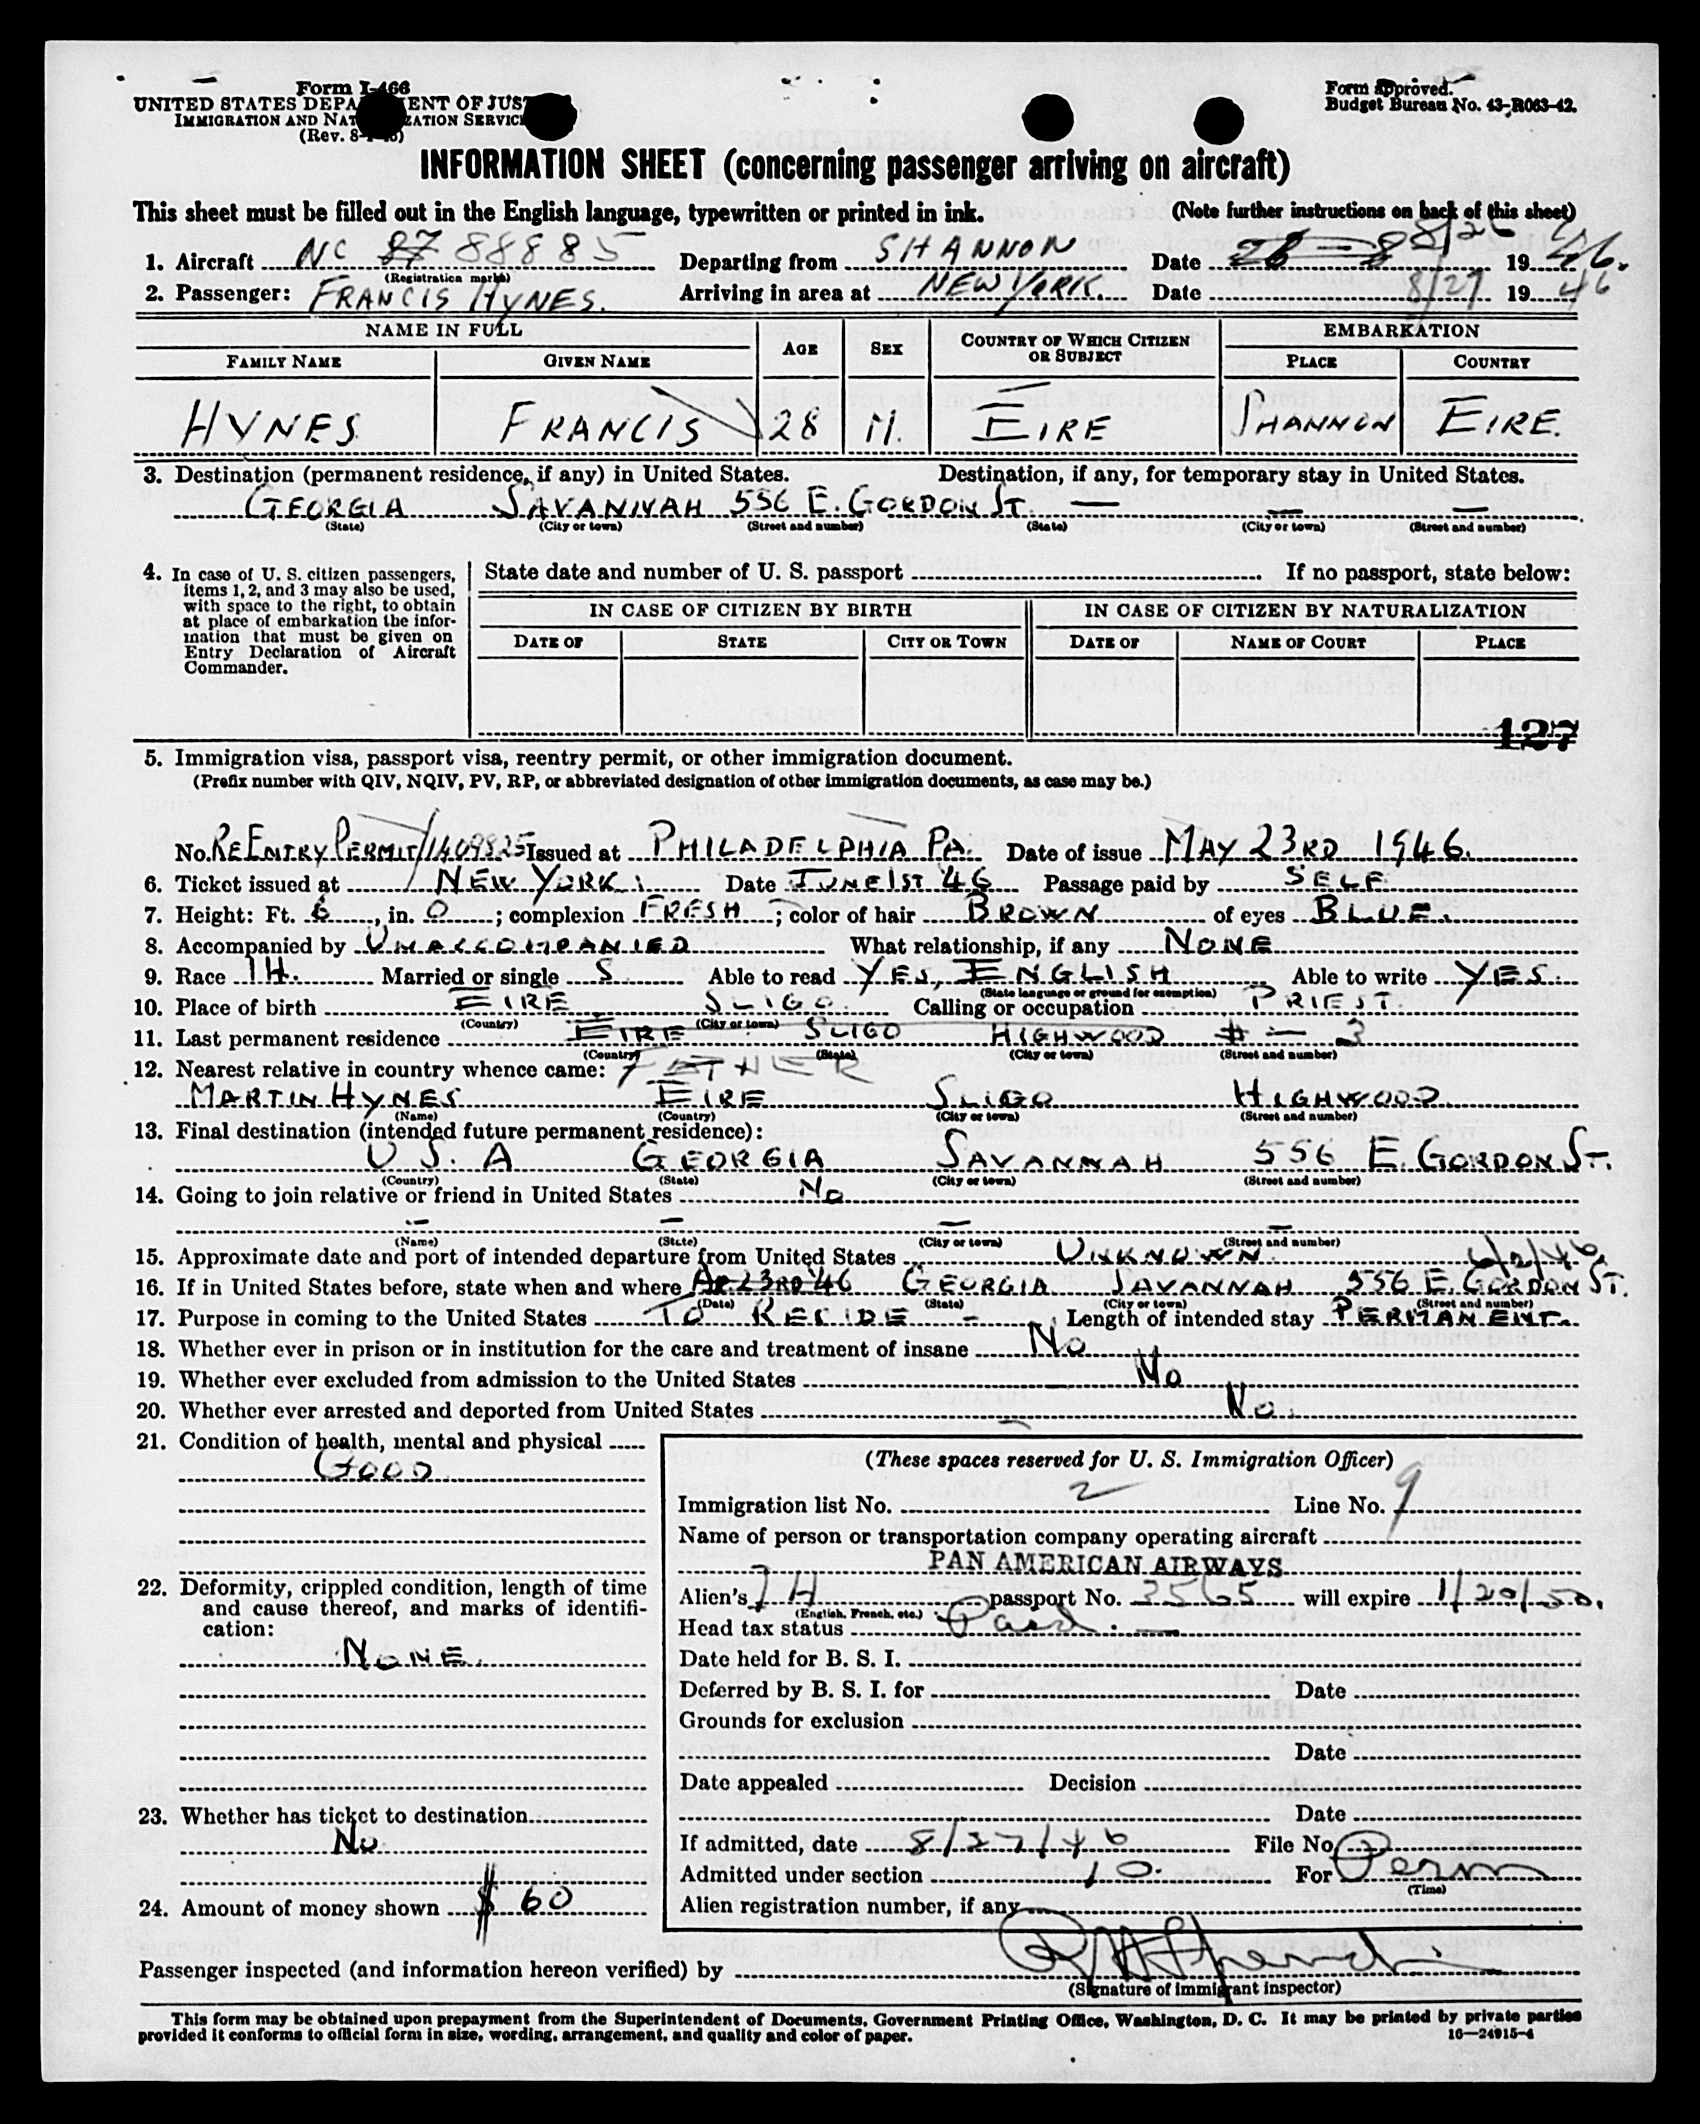 Form I-466
UNITED STATES DEPARTMENT OF JUSTICE
IMMIGRATION AND NATURALIZATION SERVICE
(Rev. 8-1-45)
Form approved.
Budget Bureau No. 43-R063-42.
INFORMATION SHEET (concerning passenger arriving on aircraft)
This sheet must be filled out in the English language, typewritten or printed in ink. (Note further instructions on back of this sheet)
1. Aircraft NC 88885 Departing from SHANNON Date 8/26 1946.
(Registration marks)
2. Passenger: FRANCIS HYNES. Arriving in area at NEW YORK. Date 8/27 1946
NAME IN FULL AGE SEX COUNTRY OF WHICH CITIZEN OR SUBJECT EMBARKATION
FAMILY NAME GIVEN NAME PLACE COUNTRY
HYNES FRANCIS 28 M. EIRE SHANNON EIRE.
3. Destination (permanent residence, if any) in United States. Destination, if any, for temporary stay in United States.
GEORGIA SAVANNAH 556 E. GORDON ST. — — —
(State) (City or town) (Street and number) (State) (City or town) (Street and number)
4. In case of U. S. citizen passengers, items 1, 2, and 3 may also be used, with space to the right, to obtain at place of embarkation the information that must be given on Entry Declaration of Aircraft Commander.
State date and number of U. S. passport If no passport, state below:
IN CASE OF CITIZEN BY BIRTH IN CASE OF CITIZEN BY NATURALIZATION
DATE OF STATE CITY OR TOWN DATE OF NAME OF COURT PLACE
127
5. Immigration visa, passport visa, reentry permit, or other immigration document.
(Prefix number with QIV, NQIV, PV, RP, or abbreviated designation of other immigration documents, as case may be.)
No. REENTRY PERMIT/1409825 Issued at PHILADELPHIA PA. Date of issue MAY 23RD 1946.
6. Ticket issued at NEW YORK. Date JUNE 1ST '46 Passage paid by SELF
7. Height: Ft. 6, in. 0; complexion FRESH; color of hair BROWN of eyes BLUE.
8. Accompanied by UNACCOMPANIED What relationship, if any NONE
9. Race IH. Married or single S. Able to read YES, ENGLISH Able to write YES.
(State language or ground for exemption)
10. Place of birth EIRE SLIGO. Calling or occupation PRIEST.
(Country) (City or town)
11. Last permanent residence EIRE SLIGO HIGHWOOD # — 3
(Country) (State) (City or town) (Street and number)
12. Nearest relative in country whence came: FATHER
MARTIN HYNES EIRE SLIGO HIGHWOOD
(Name) (Country) (City or town) (Street and number)
13. Final destination (intended future permanent residence):
U S. A GEORGIA SAVANNAH 556 E. GORDON ST.
(Country) (State) (City or town) (Street and number)
14. Going to join relative or friend in United States No
— — — —
(Name) (State) (City or town) (Street and number)
15. Approximate date and port of intended departure from United States UNKNOWN.
6/2/46.
16. If in United States before, state when and where AP. 23RD '46 GEORGIA SAVANNAH 556 E. GORDON ST.
(Date) (State) (City or town) (Street and number)
17. Purpose in coming to the United States TO RESIDE - Length of intended stay PERMANENT.
18. Whether ever in prison or in institution for the care and treatment of insane No
19. Whether ever excluded from admission to the United States No
20. Whether ever arrested and deported from United States No.
21. Condition of health, mental and physical
GOOD
22. Deformity, crippled condition, length of time and cause thereof, and marks of identification:
NONE.
23. Whether has ticket to destination
No
24. Amount of money shown $ 60
(These spaces reserved for U. S. Immigration Officer)
Immigration list No. 2 Line No. 9
Name of person or transportation company operating aircraft
PAN AMERICAN AIRWAYS
Alien's IH passport No. 3565 will expire 1/20/50.
(English, French, etc.)
Head tax status Paid. —
Date held for B. S. I.
Deferred by B. S. I. for Date
Grounds for exclusion
Date
Date appealed Decision
Date
If admitted, date 8/27/46 File No.
Admitted under section 10. For Perm
(Time)
Alien registration number, if any
Passenger inspected (and information hereon verified) by
(Signature of immigrant inspector)
This form may be obtained upon prepayment from the Superintendent of Documents, Government Printing Office, Washington, D. C. It may be printed by private parties
provided it conforms to official form in size, wording, arrangement, and quality and color of paper.
16—24915-4